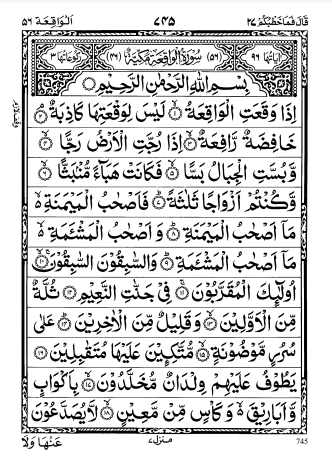 قَالَ فَمَا خَطْبُكُمْ ٢٧ ٧٤٥ اَلْوَاقِعَة ٥٦
اٰيَاتُهَا ٩٦ (٥٦) سُوْرَةُ الْوَاقِعَةِ مَكِّيَّةٌ (٤٦) رُكُوْعَاتُهَا ٣
بِسْمِ اللّٰهِ الرَّحْمٰنِ الرَّحِيْمِ
اِذَا وَقَعَتِ الْوَاقِعَةُ ۙ﴿١﴾ لَيْسَ لِوَقْعَتِهَا كَاذِبَةٌ ۘ﴿٢﴾
خَافِضَةٌ رَّافِعَةٌ ۙ﴿٣﴾ اِذَا رُجَّتِ الْاَرْضُ رَجًّا ۙ﴿٤﴾
وَّ بُسَّتِ الْجِبَالُ بَسًّا ۙ﴿٥﴾ فَكَانَتْ هَبَآءً مُّنْۢبَثًّا ۙ﴿٦﴾
وَّ كُنْتُمْ اَزْوَاجًا ثَلٰثَةً ؕ﴿٧﴾ فَاَصْحٰبُ الْمَيْمَنَةِ ۙ۬
مَاۤ اَصْحٰبُ الْمَيْمَنَةِ ؕ﴿٨﴾ وَ اَصْحٰبُ الْمَشْـَٔمَةِ ۙ۬
مَاۤ اَصْحٰبُ الْمَشْـَٔمَةِ ؕ﴿٩﴾ وَ السّٰبِقُوْنَ السّٰبِقُوْنَ ۚۙ﴿١٠﴾
اُولٰٓئِكَ الْمُقَرَّبُوْنَ ۚ﴿١١﴾ فِيْ جَنّٰتِ النَّعِيْمِ ﴿١٢﴾ ثُلَّةٌ
مِّنَ الْاَوَّلِيْنَ ۙ﴿١٣﴾ وَ قَلِيْلٌ مِّنَ الْاٰخِرِيْنَ ؕ﴿١٤﴾ عَلٰى
سُرُرٍ مَّوْضُوْنَةٍ ۙ﴿١٥﴾ مُّتَّكِـِٕيْنَ عَلَيْهَا مُتَقٰبِلِيْنَ ﴿١٦﴾
يَطُوْفُ عَلَيْهِمْ وِلْدَانٌ مُّخَلَّدُوْنَ ۙ﴿١٧﴾ بِاَكْوَابٍ
وَّ اَبَارِيْقَ ۙ۬ وَ كَاْسٍ مِّنْ مَّعِيْنٍ ۙ﴿١٨﴾ لَّا يُصَدَّعُوْنَ
745 منزل ٧ عَنْهَا وَلَا